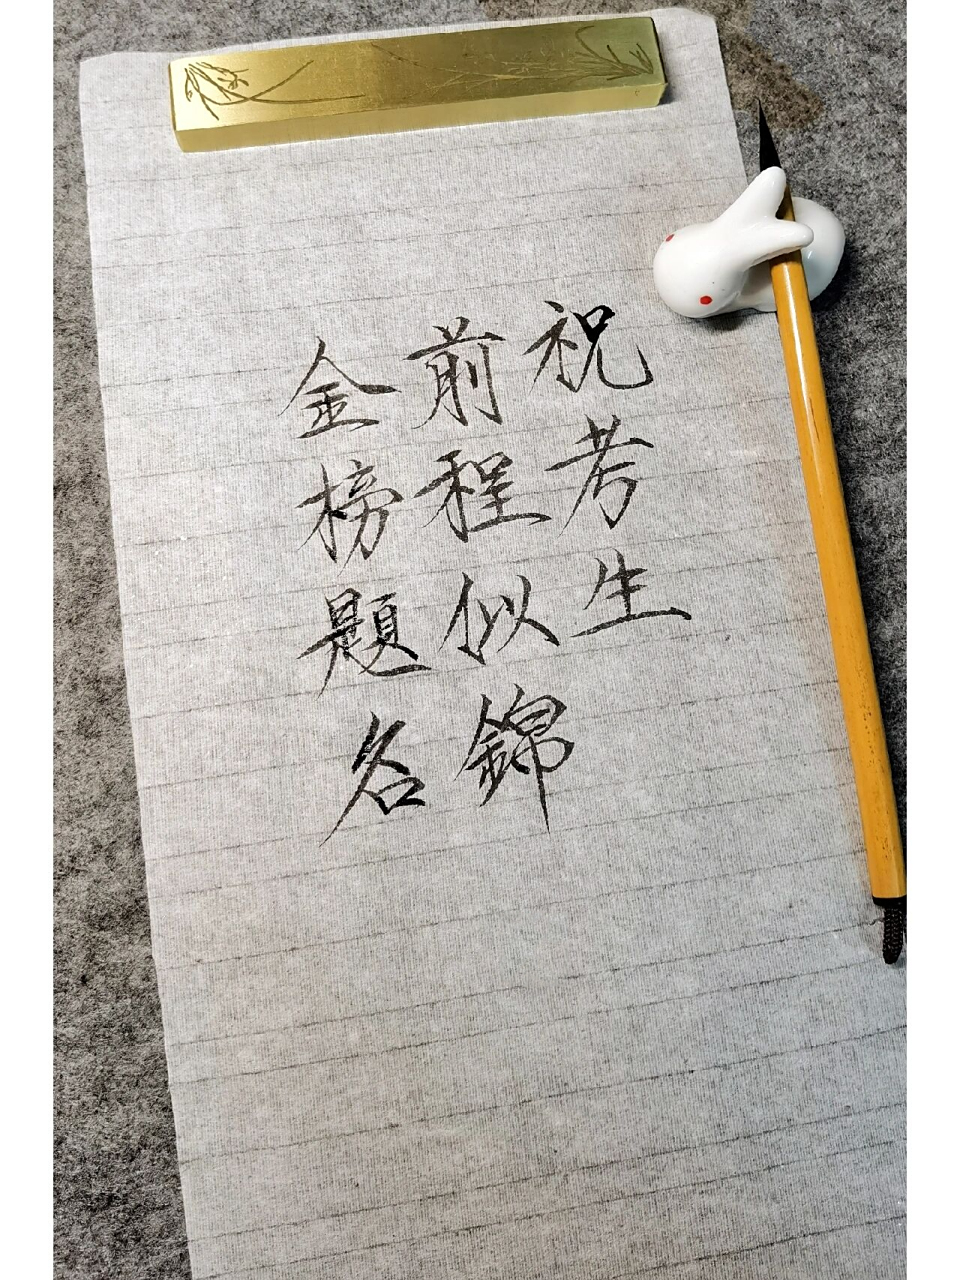 祝考生
前程似錦
金榜題名